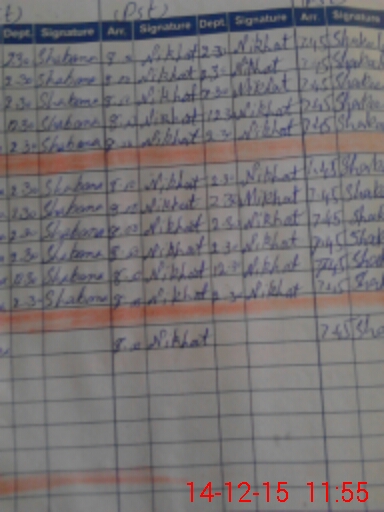 (Pst)
Dept. Signature Arr. Signature Dept. Signature Arr. Signature
2.30 Shabana 8.00 Nikhat 2.30 Nikhat 7.45
2.30 Shabana 8.00 Nikhat 2.30 Nikhat 7.45
2.30 Shabana 8.00 Nikhat 2.30 Nikhat 7.45
12.30 Shabana 8.00 Nikhat 12.30 Nikhat 7.45
2.30 Shabana 8.00 Nikhat 2.30 Nikhat 7.45
2.30 Shabana 8.00 Nikhat 2.30 Nikhat 7.45
2.30 Shabana 8.00 Nikhat 2.30 Nikhat 7.45
2.30 Shabana 8.00 Nikhat 2.30 Nikhat 7.45
2.30 Shabana 8.00 Nikhat 2.30 Nikhat 7.45
12.30 Shabana 8.00 Nikhat 12.30 Nikhat 7.45
2.30 Shabana 8.00 Nikhat 2.30 Nikhat 7.45
8.00 Nikhat 7.45
14-12-15 11:55